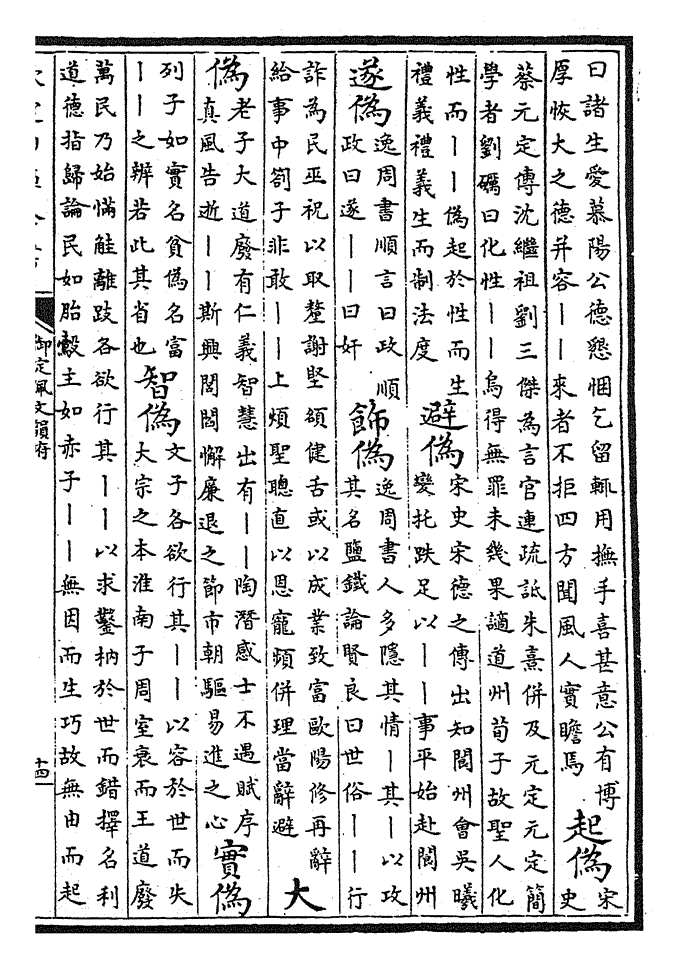 曰諸生愛慕陽公德懇悃乞留輒用撫手喜甚意公有博
厚恢大之德并容丨丨來者不拒四方聞風人實瞻焉
起偽
宋
史
蔡元定傳沈繼祖劉三傑為言官連疏詆朱熹併及元定元定簡
學者劉礪曰化性丨丨烏得無罪未幾果謫道州荀子故聖人化
性而丨丨偽起於性而生
禮義禮義生而制法度
避偽
宋史宋德之傳出知閬州會吳曦
變托跌足以丨丨事平始赴閬州
遂偽
逸周書順言曰政順
政曰遂丨丨曰奸
飾偽
逸周書人多隱其情丨其丨以攻
其名鹽鐵論賢良曰世俗丨丨行
詐為民巫祝以取釐謝堅頟健舌或以成業致富歐陽修再辭
給事中劄子非敢丨丨上煩聖聰直以恩寵頻併理當辭避
大
偽
老子大道廢有仁義智慧出有丨丨陶潛感士不遇賦序
真風告逝丨丨斯興閭閻懈廉退之節市朝驅易進之心
實偽
列子如實名貧偽名富
丨丨之辨若此其省也
智偽
文子各欲行其丨丨以容於世而失
大宗之本淮南子周室衰而王道廢
萬民乃始慲觟離跂各欲行其丨丨以求鑿枘於世而錯擇名利
道德指歸論民如胎㲉主如赤子丨丨無因而生巧故無由而起
御定佩文韻府
十四